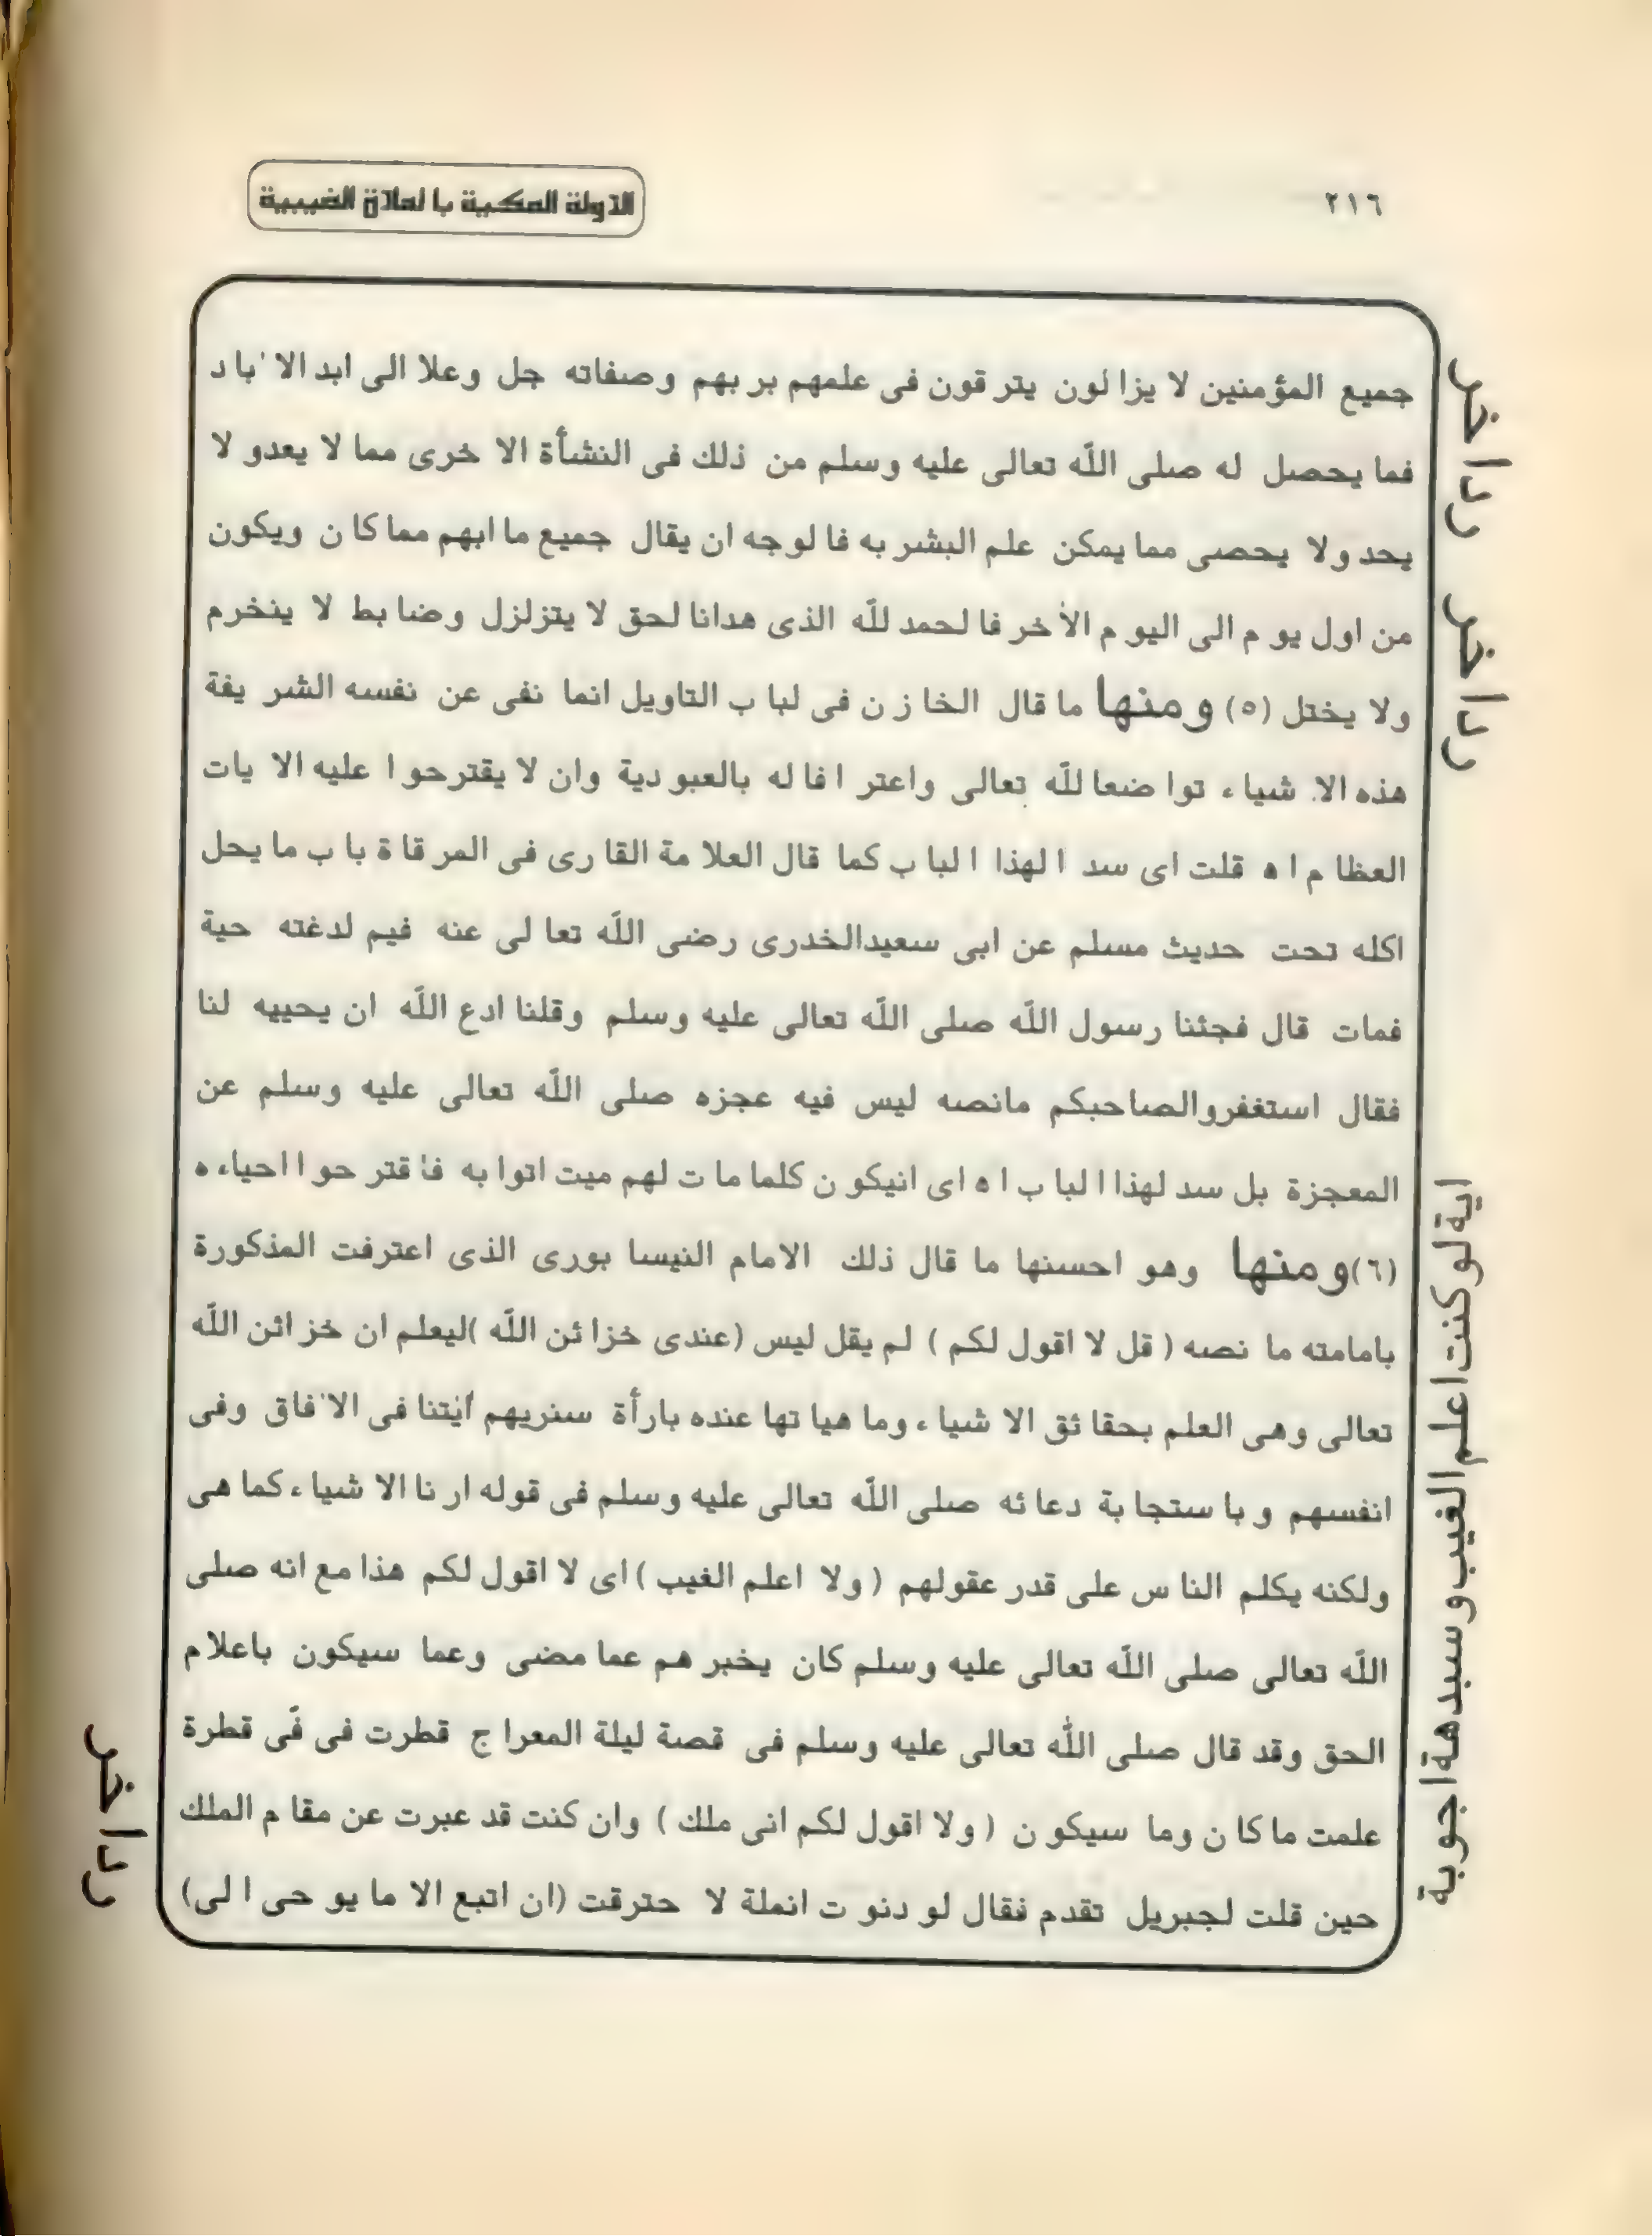 ٢١٦
الدولة المكية با لمادة الغيبية
جميع المؤمنين لا يزا لون يتر قون فى علمهم بر بهم وصفاته جل وعلا الى ابد الا ٰبا د
فما يحصل له صلى اللّه تعالى عليه وسلم من ذلك فى النشأة الا خرى مما لا يعدو لا
يحد ولا يحصى مما يمكن علم البشر به فا لوجه ان يقال جميع ما ابهم مما كا ن ويكون
من اول يو م الى اليو م الأخر فا لحمد للّه الذى هدانا لحق لا يتزلزل وضا بط لا ينخرم
ولا يختل (٥) ومنها ما قال الخا ز ن فى لبا ب التاويل انما نفى عن نفسه الشر يفة
هذه الا شيا ء توا ضعا للّه تعالى واعتر ا فا له بالعبو دية وان لا يقترحو ا عليه الا يات
العظا م ا ه قلت اى سد ا لهذا ا لبا ب كما قال العلا مة القا رى فى المر قا ة با ب ما يحل
اكله تحت حديث مسلم عن ابى سعيدالخدرى رضى اللّه تعا لى عنه فيم لدغته حية
فمات قال فجئنا رسول اللّه صلى اللّه تعالى عليه وسلم وقلنا ادع اللّه ان يحييه لنا
فقال استغفروالصاحبكم مانصه ليس فيه عجزه صلى اللّه تعالى عليه وسلم عن
المعجزة بل سد لهذا ا لبا ب ا ه اى انيكو ن كلما ما ت لهم ميت اتوا به فا قتر حو ا احياء ه
(٦)ومنها وهو احسنها ما قال ذلك الامام النيسا بورى الذى اعترفت المذكورة
بامامته ما نصه ( قل لا اقول لكم ) لم يقل ليس (عندى خزا ئن اللّه )ليعلم ان خز ائن اللّه
تعالى وهى العلم بحقا ئق الا شيا ء وما هيا تها عنده بارأة سنريهم أيٰتنا فى الا ٰفاق وفى
انفسهم و با ستجا بة دعا ئه صلى اللّه تعالى عليه وسلم فى قوله ار نا الا شيا ء كما هى
ولكنه يكلم النا س على قدر عقولهم ( ولا اعلم الغيب ) اى لا اقول لكم هذا مع انه صلى
اللّه تعالى صلى اللّه تعالى عليه وسلم كان يخبر هم عما مضى وعما سيكون باعلام
الحق وقد قال صلى اللّه تعالى عليه وسلم فى قصة ليلة المعرا ج قطرت فى فّى قطرة
علمت ما كا ن وما سيكو ن ( ولا اقول لكم انى ملك ) وان كنت قد عبرت عن مقا م الملك
حين قلت لجبريل تقدم فقال لو دنو ت انملة لا حترقت (ان اتبع الا ما يو حى ا لى)
رداخر
رداخر
اية لو كنت اعلم الغيب وسبدهة اجوبة
رداخر